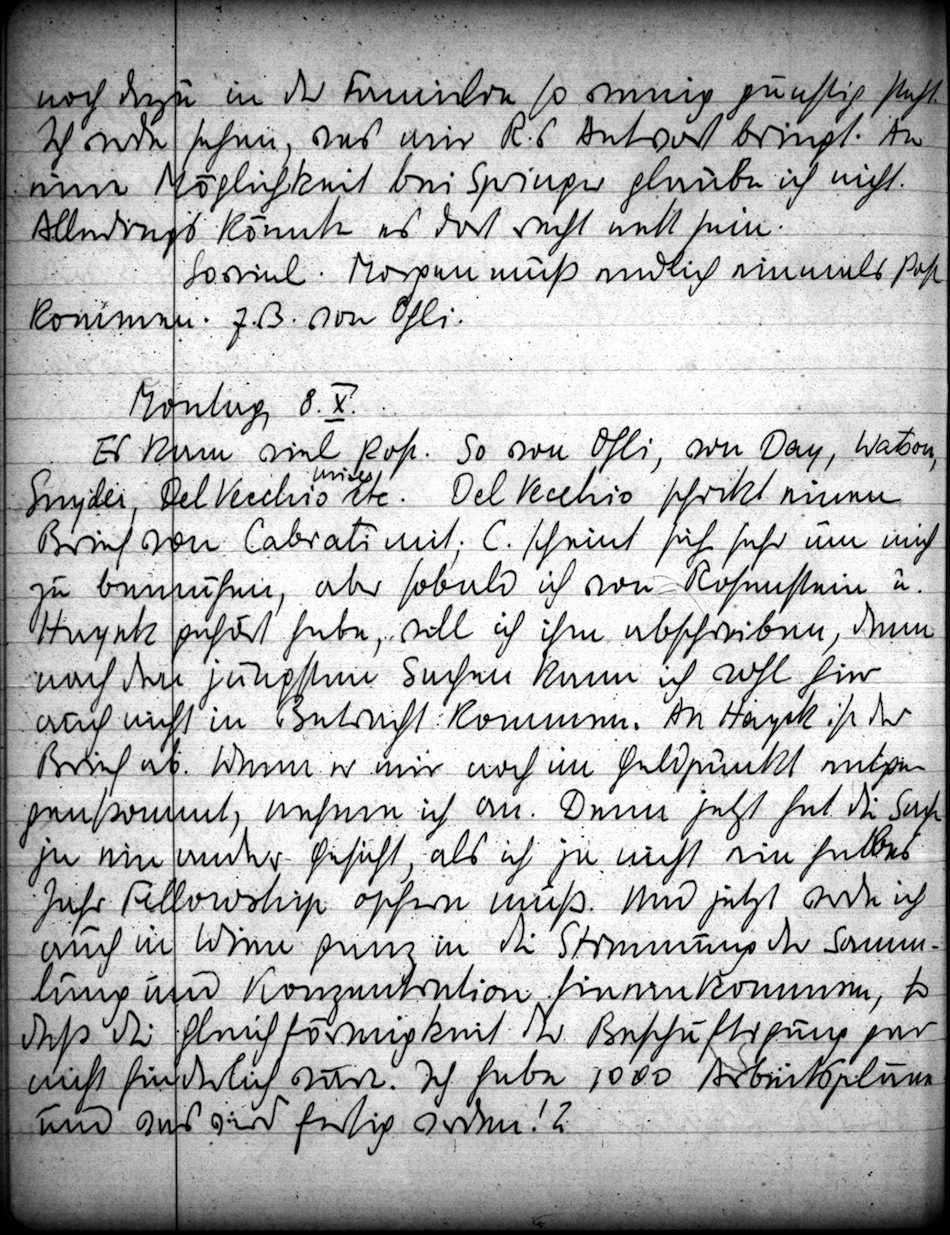 noch dazu in der Familie so wenig günstig steht.
Ich werde sehen, was mir R.s Antwort bringt. An
eine Möglichkeit bei Springer glaube ich nicht.
Allerdings könnte es dort recht nett sein.
Soviel. Morgen muß endlich einmals Post
kommen. z.B. von Ohli.
Montag, 8. X.
Es kam viel Post. So von Ohli, von Day, Watson,
Snyder, Del Vecchio etc. Del Vecchio schickt einen
Brief von Cabiati mit; C. scheint sich sehr um mich
zu bemühen, aber sobald ich von Rosenstein u.
Hayek gehört habe, will ich ihm abschreiben, denn
nach den jüngsten Sachen kann ich wohl hier
auch nicht in Betracht kommen. An Hayek ist der
Brief ab. Wenn er mir noch im Geldpunkt entge-
genkommt, nehme ich an. Denn jetzt hat die Sache
ja ein ander Gesicht, als ich ja nicht ein halbes
Jahr Fellowship opfern muß. Und jetzt werde ich
auch in Wien ganz in die Stimmung der Samm-
lung und Konzentration hineinkommen, so
daß die Gleichförmigkeit der Beschäftigung gar
nicht hinderlich wäre. Ich habe 1000 Arbeitspläne
und was wird fertig werden!?